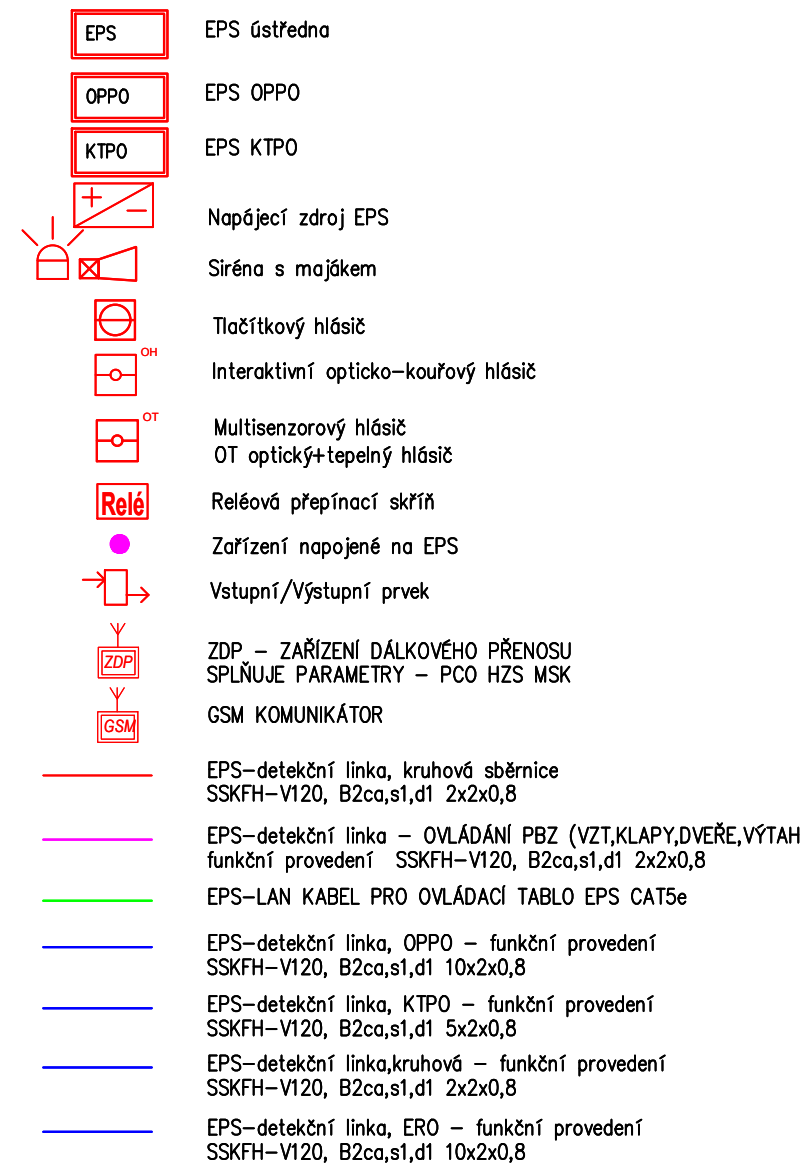 EPS EPS ústředna
OPPO EPS OPPO
KTPO EPS KTPO
+ − Napájecí zdroj EPS
Siréna s majákem
Tlačítkový hlásič
OH
Interaktivní opticko−kouřový hlásič
OT
Multisenzorový hlásič
OT optický+tepelný hlásič
Relé Reléová přepínací skříň
Zařízení napojené na EPS
Vstupní/Výstupní prvek
ZDP ZDP − ZAŘÍZENÍ DÁLKOVÉHO PŘENOSU
SPLŇUJE PARAMETRY − PCO HZS MSK
GSM GSM KOMUNIKÁTOR
EPS−detekční linka, kruhová sběrnice
SSKFH−V120, B2ca,s1,d1 2x2x0,8
EPS−detekční linka − OVLÁDÁNÍ PBZ (VZT,KLAPY,DVEŘE,VÝTAH
funkční provedení SSKFH−V120, B2ca,s1,d1 2x2x0,8
EPS−LAN KABEL PRO OVLÁDACÍ TABLO EPS CAT5e
EPS−detekční linka, OPPO − funkční provedení
SSKFH−V120, B2ca,s1,d1 10x2x0,8
EPS−detekční linka, KTPO − funkční provedení
SSKFH−V120, B2ca,s1,d1 5x2x0,8
EPS−detekční linka,kruhová − funkční provedení
SSKFH−V120, B2ca,s1,d1 2x2x0,8
EPS−detekční linka, ERO − funkční provedení
SSKFH−V120, B2ca,s1,d1 10x2x0,8